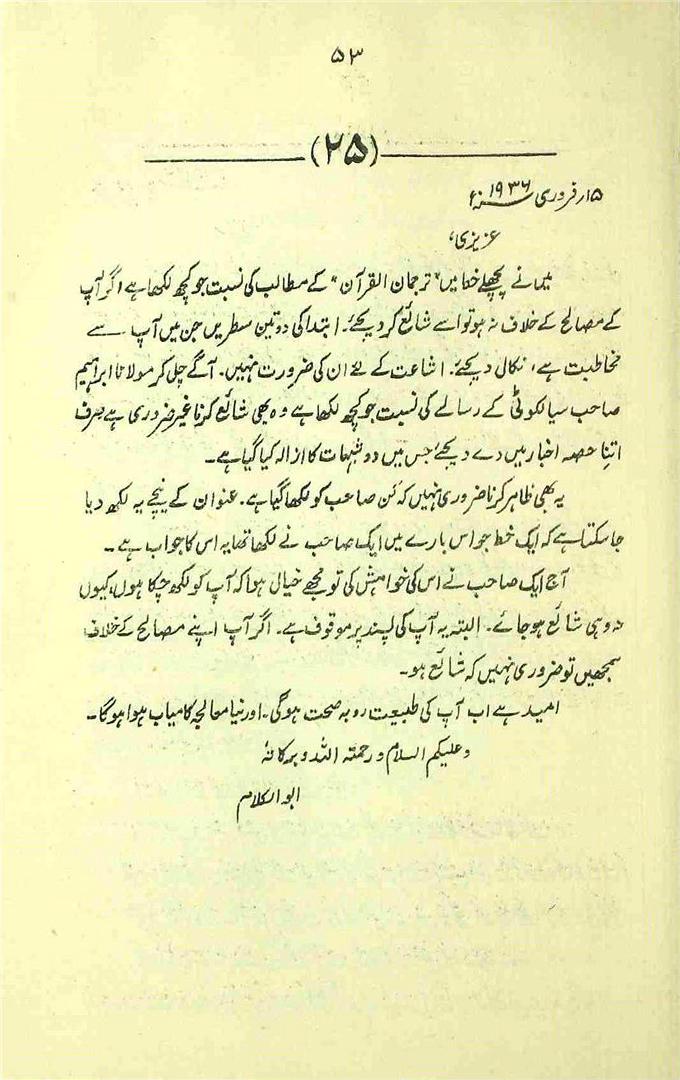 ۵۳
(۲۵)
۱۵؍ فروری ۱۹۳۶ء
عزیزی،
میں نے پچھلے خط میں "ترجمان القرآن" کے مطالب کی نسبت جو کچھ لکھا ہے اگر آپ
کے مصالح کے خلاف نہ ہو تو اسے شائع کر دیجئے۔ ابتدا کی دو تین سطریں جن میں آپ سے
مخاطبت ہے، نکال دیجئے۔ اشاعت کے لئے ان کی ضرورت نہیں۔ آگے چل کر مولانا ابراہیم
صاحب سیالکوٹی کے رسالے کی نسبت جو کچھ لکھا ہے وہ بھی شائع کرنا غیر ضروری ہے صرف
اتنا حصہ اخبار میں دے دیجئے جس میں دو شبہات کا ازالہ کیا گیا ہے۔
یہ بھی ظاہر کرنا ضروری نہیں کہ کن صاحب کو لکھا گیا ہے۔ عنوان کے نیچے یہ لکھ دیا
جا سکتا ہے کہ ایک خط جو اس بارے میں ایک صاحب نے لکھا تھا یہ اس کا جواب ہے۔
آج ایک صاحب نے اس کی خواہش کی تو مجھے خیال ہوا کہ آپ کو لکھ چکا ہوں، کیوں
نہ وہی شائع ہو جائے۔ البتہ یہ آپ کی پسند پر موقوف ہے۔ اگر آپ اپنے مصالح کے خلاف
سمجھیں تو ضروری نہیں کہ شائع ہو۔
امید ہے اب آپ کی طبیعت رو بہ صحت ہوگی۔ اور نیا معالجہ کامیاب ہوا ہوگا۔
وعلیکم السلام ورحمتہ اللہ وبرکاتہ
ابوالکلام